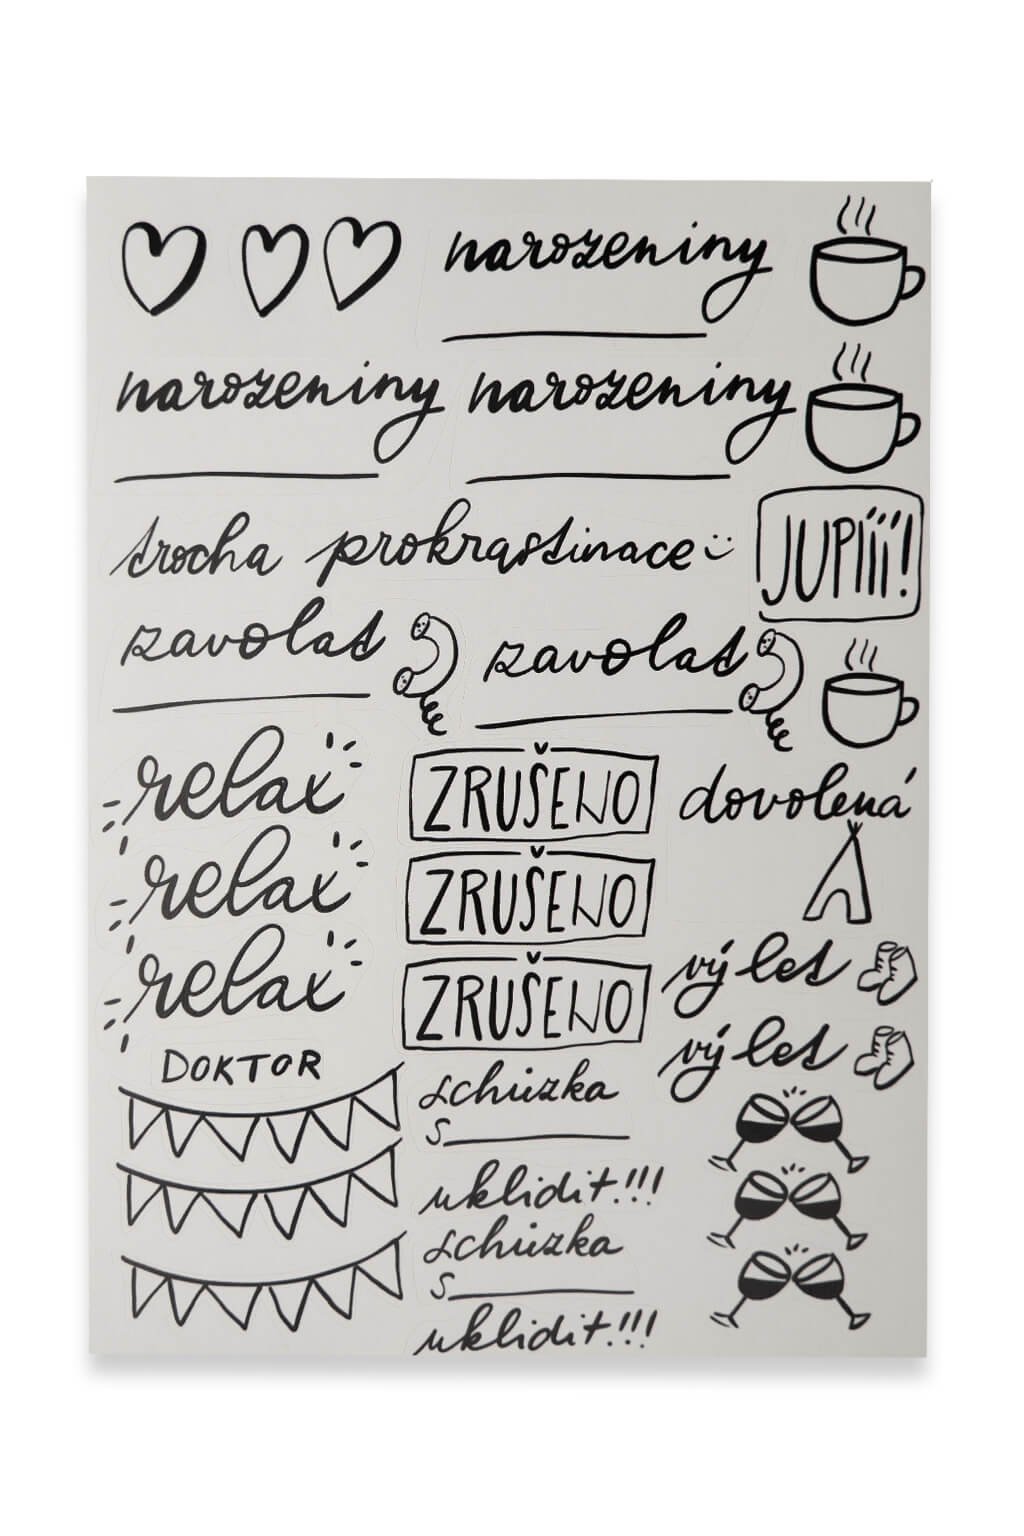 narozeniny
narozeniny narozeniny
trocha prokrastinace
JUPÍÍÍ!
zavolat zavolat
relax
ZRUŠENO
dovolená
relax
ZRUŠENO
relax
ZRUŠENO
výlet
výlet
DOKTOR
schůzka
s
uklidit!!!
schůzka
s
uklidit!!!